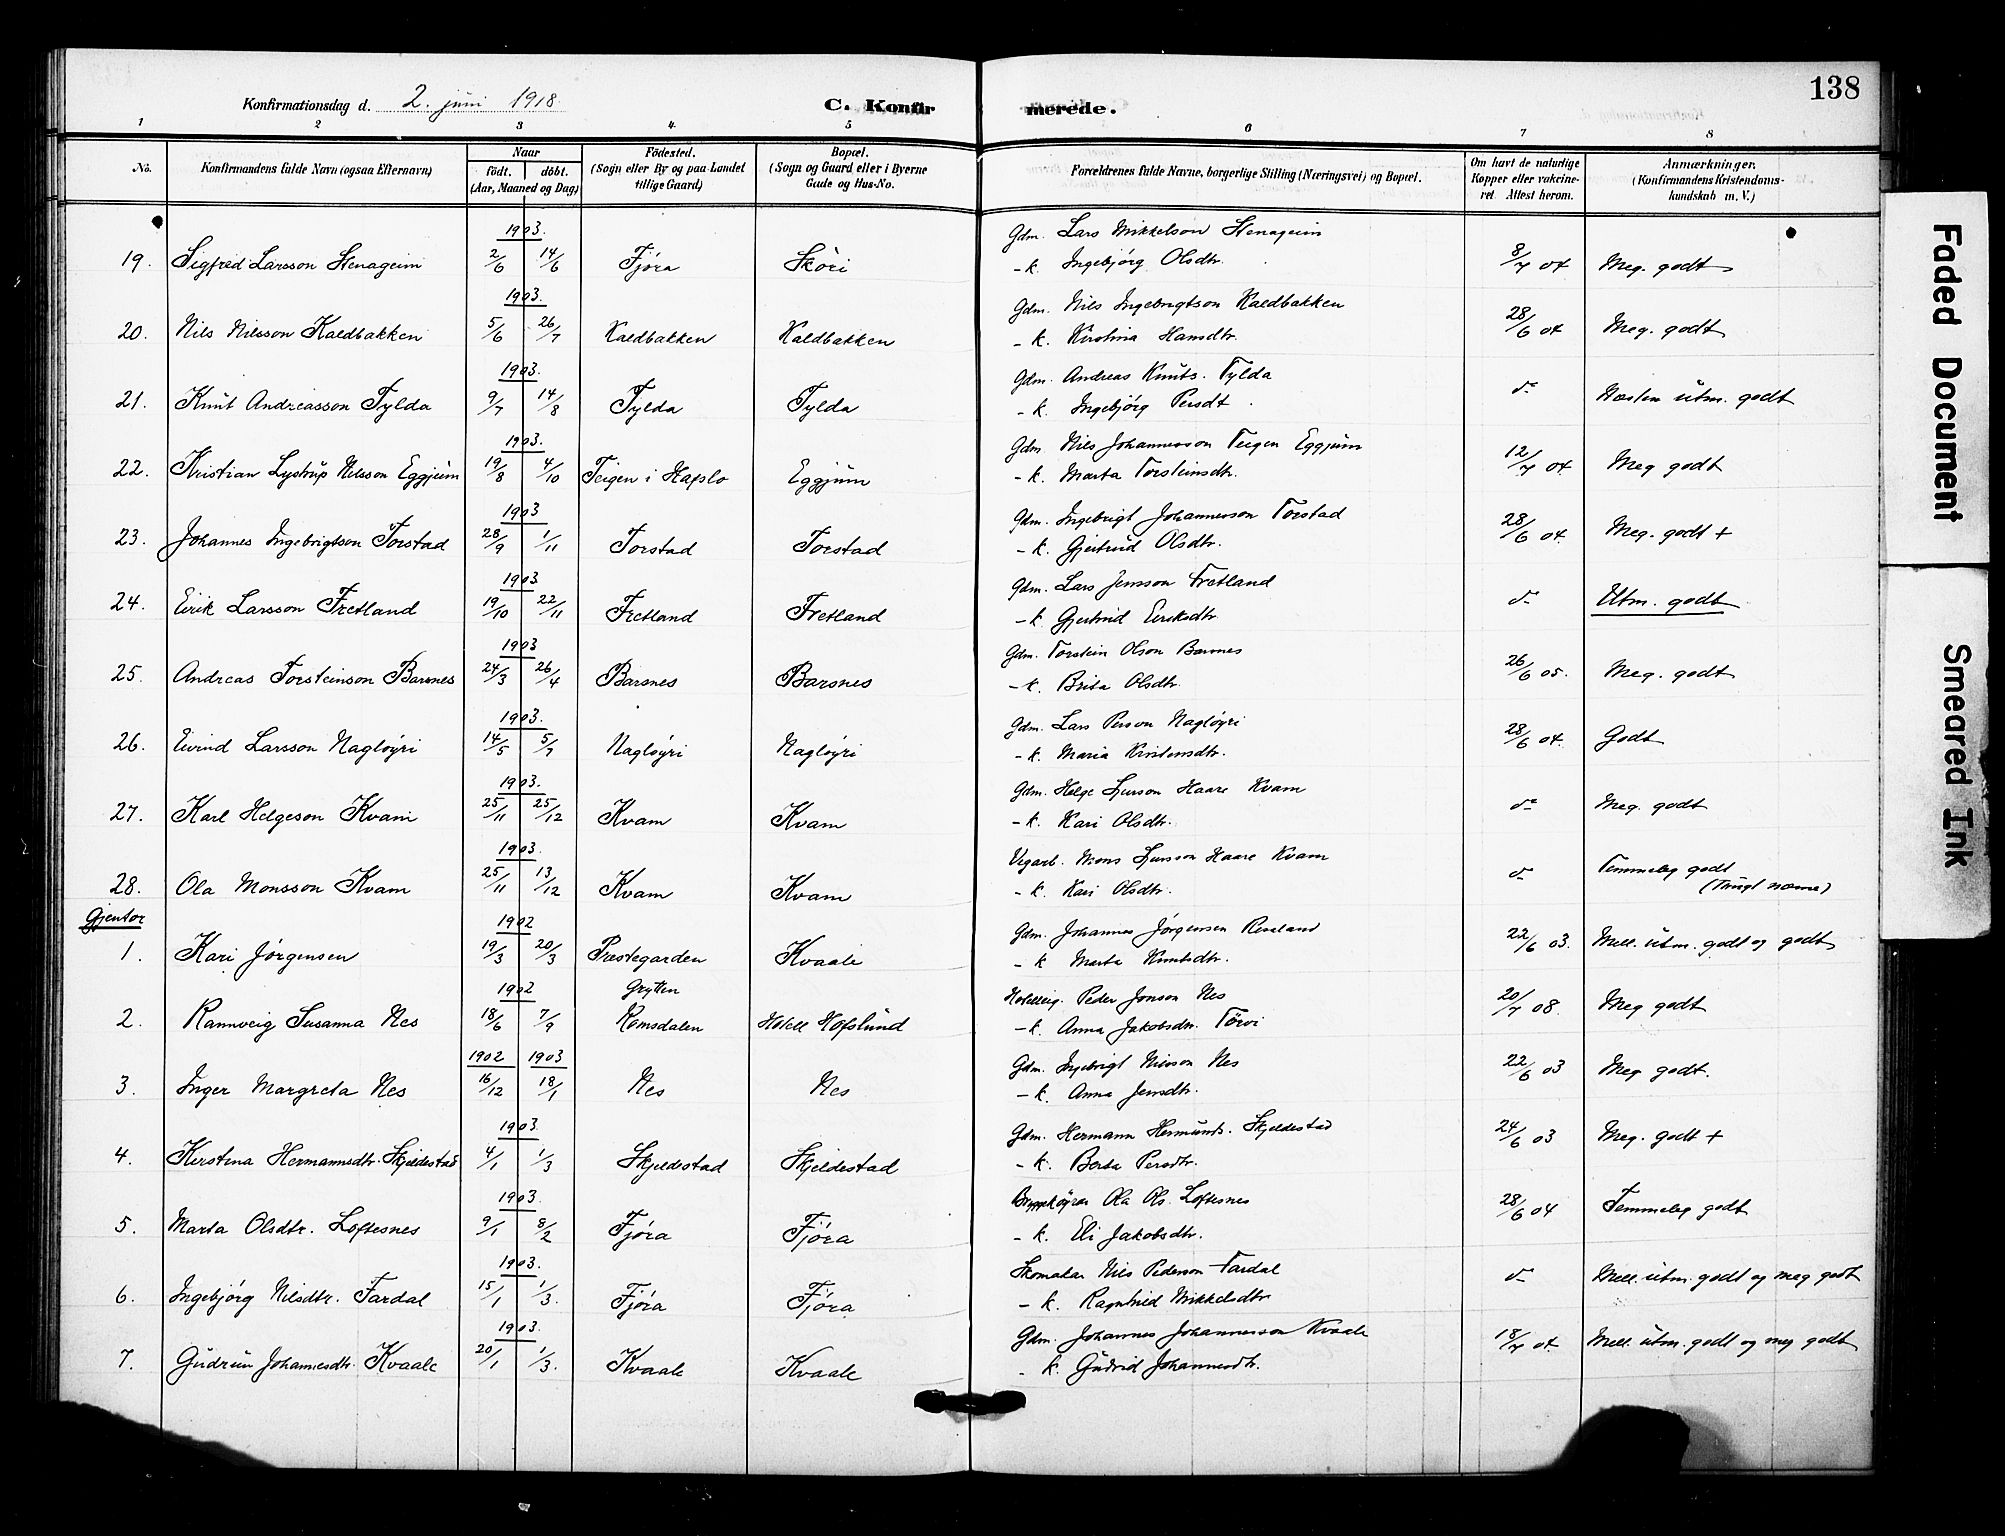 138
Konfirmationsdag d. 2. juni 1918
C. Konfirmerede.
1 2 3 4 5 6 7 8
No.
Konfirmandens fulde Navn (ogsaa Efternavn)
Naar
födt. döbt.
(Aar, Maaned og Dag)
Födested.
(Sogn eller By og paa Landet
tillige Gaard)
Bopæl.
(Sogn og Gaard eller i Byerne
Gade og Hus-No.
Forældrenes fulde Navne, borgerlige Stilling (Næringsvei) og Bopæl.
Om havt de naturlige
Kopper eller vakcine-
ret. Attest herom.
Anmærkninger.
(Konfirmandens Kristendoms-
kundskab m. V.)
1903. Gdm. Lars Mikkelson Stenageim
19. Sigfred Larsson Stenageim 2/6 14/6 Fjøra Skóri - k. Ingebjørg Olsdtr. 8/7 04 Meg. godt
1903. Gdm. Nils Ingebrigtson Kaldbakken
20. Nils Nilsson Kaldbakken 5/6 26/7 Kaldbakken Kaldbakken - k. Kristina Hansdtr. 28/6 04 Meg. godt
1903. Gdm. Andreas Knuts. Tylda
21. Knut Andreasson Tylda 9/7 14/8 Tylda Tylda - k. Ingebjørg Persdt. do Næsten utm. godt
1903. Gdm Nils Johannesson Teigen Eggjum
22. Kristian Lystrup Nilsson Eggjum 19/8 4/10 Teigen i Hafslo Eggjum - k. Marta Torsteinsdtr. 12/7 04 Meg godt
1903 Gdm. Ingebrigt Johannesson Torstad
23. Johannes Ingebrigtson Torstad 28/9 1/11 Torstad Torstad - k. Gjertrud Olsdtr. 28/6 04. Meg. godt +
1903 Gdm. Lars Jensson Fretland
24. Eirik Larsson Fretland 19/10 22/11 Fretland Fretland - k. Gjertrud Eiriksdtr. do Utm. godt
1903 Gdm. Torstein Olson Barsnes
25. Andreas Torsteinson Barsnes 24/3 26/4 Barsnes Barsnes - k. Brita Olsdtr. 26/6 05. Meg. godt
1903. Gdm. Lars Person Nagløyri
26. Eivind Larsson Nagløyri 14/5 5/7 Nagløyri Nagløyri - k. Maria Kristensdtr. 28/6 04. Godt
1903. Gdm. Helge Sjurson Haare Kvam
27. Karl Helgeson Kvam 25/11 25/12 Kvam Kvam - k. Kari Olsdtr. do Meg. godt
1903. Vegarb. Mons Sjursson Haare Kvam
28. Ola Monsson Kvam 25/11 13/12 Kvam Kvam - k. Kari Olsdtr. do Temmeleg godt
(Tungt næme)
Gjentor
1902 Gdm. Johannes Jørgensen
1. Kari Jørgensen 19/3 20/3 Prestegarden Kvaale - k Marta Knutsdtr. 22/6 03. Mell. utm. godt og godt
1902 Grytten Hotelleig. Peder Jonson Nes
2. Rannveig Susanna Nes 18/6 7/9 Romsdalen Hotell Hofslund - k. Anna Jakobsdtr. 20/7 08. Meg godt
1902 1903 Gdm. Ingebrigt Nilsson Nes
3. Inger Margreta Nes 16/12 18/1 Nes Nes - k. Anna Jensdtr. 22/6 03 Meg godt.
1903. Gdm. Hermann Hermunds. Skjeldestad
4. Kirstina Hermannsdtr. Skjeldestad 4/1 1/3 Skjeldestad Skjeldestad - k. Berta Persdtr. 24/6 03 Meg. godt +
1903. Ola Ols. Loftesnes
5. Marta Olsdtr. Loftesnes 9/1 8/2 Fjøra Fjøra - k. Eli Jakobsdtr. 28/6 04 Temmeleg godt
1903. Skomakar Nils Pederson Fardal
6. Ingebjørg Nilsdtr. Fardal 15/1 1/3. Fjøra Fjøra - k. Ragnhild Mikkelsdtr do Mell. utm. godt og meg godt
1903. Gdm. Johannes Johannesson Kvaale
7. Gudrun Johannesdtr. Kvaale 20/1 1/3. Kvaale Kvaale - k. Gudrid Johannesdtr. 18/7 04. Mell. utm. godt og meg godt
Faded Document
Smeared Ink